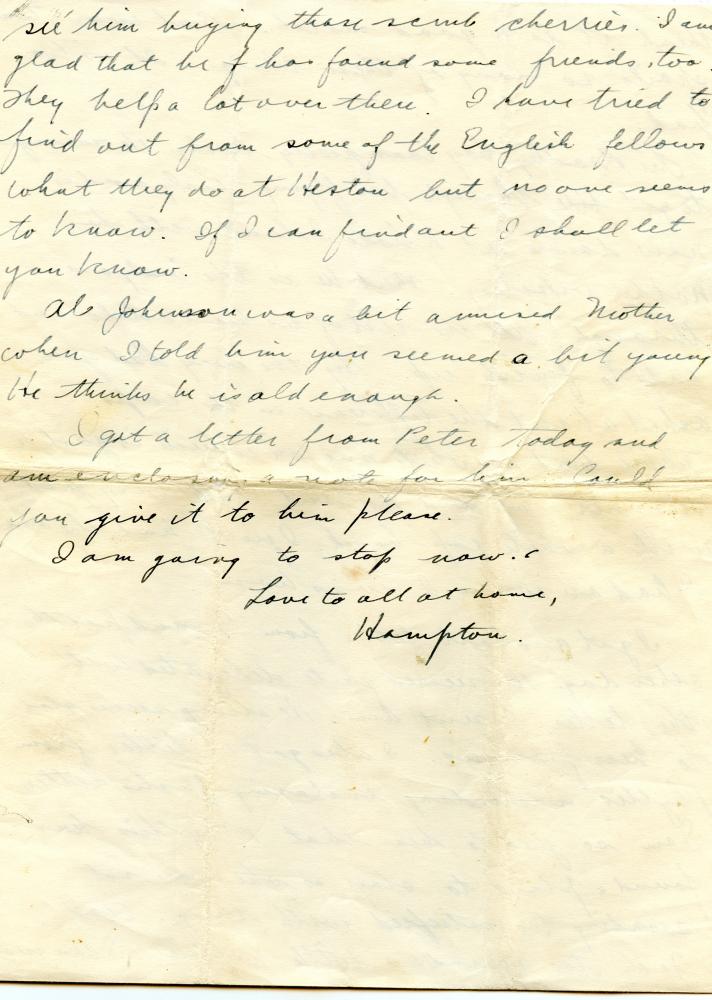 see him buying those scrub cherries. I am
glad that he has found some friends, too.
They help a lot over there. I have tried to
find out from some of the English fellows
what they do at Heston but no one seems
to know. If I can find out I shall let
you know.
Al Johnson was a bit amused Mother
when I told him you seemed a bit young
He thinks he is old enough.
I got a letter from Peter today and
am enclosing a note for him Could
you give it to him please.
I am going to stop now.
Love to all at home,
Hampton.